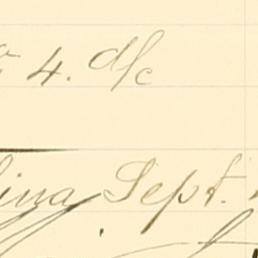 4. d/c
lina Sept.